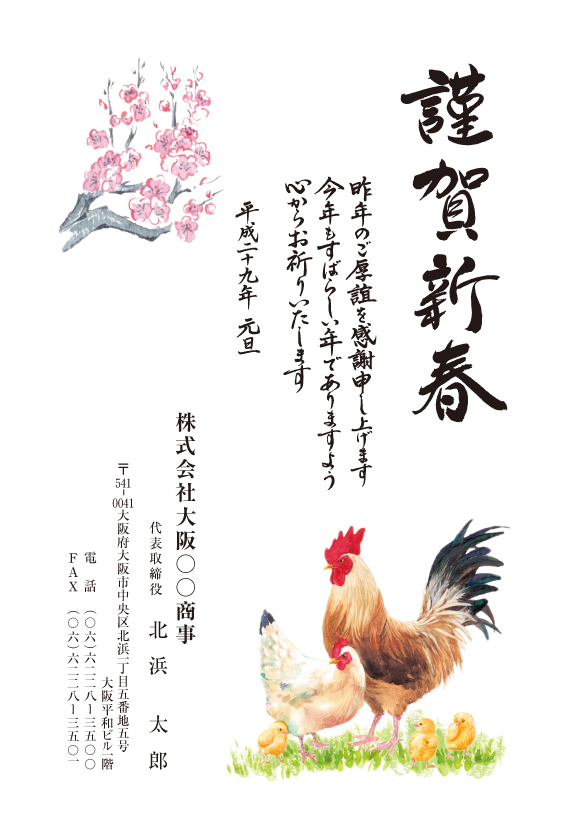 謹賀新春
昨年のご厚誼を感謝申し上げます
今年もすばらしい年でありますよう
心からお祈りいたします
平成二十九年 元旦
株式会社大阪〇〇商事
代表取締役 北浜 太郎
〒541-0041大阪府大阪市中央区北浜二丁目五番地五号
大阪平和ビル一階
電話 (〇六)六二二八ー三五〇〇
FAX (〇六)六二二八ー三五〇一